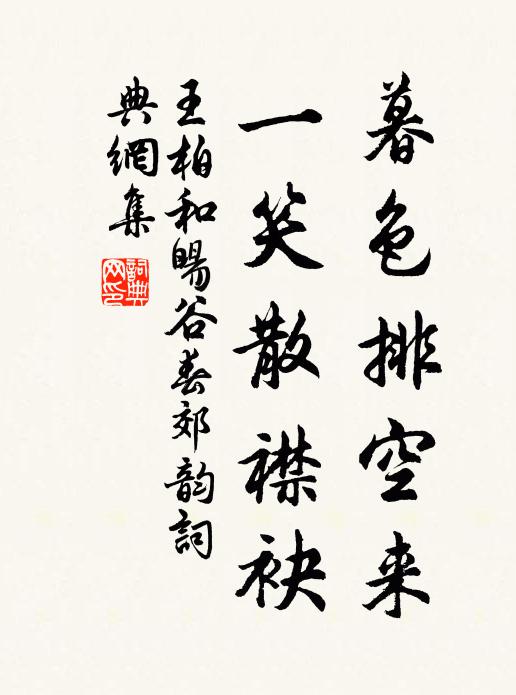 暮色排空来
一笑散襟袂
王柏和暘谷春郊韵詞
典網集
詞典
网印